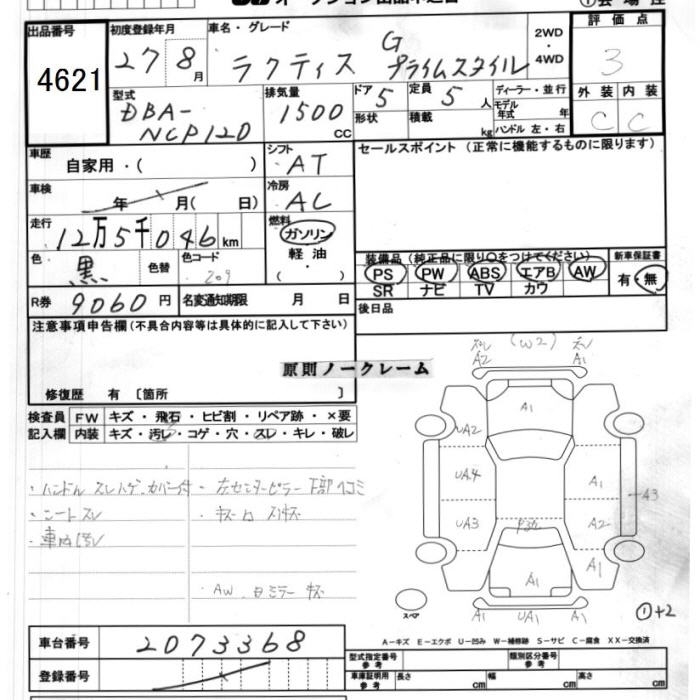 出品番号
4621
初度登録年月
27 8月
車名・グレード
ラクティス G プライムスタイル
2WD
・
4WD
評価点
3
外装 内装
C C
型式
DBA-
NCP120
排気量
1500
cc
ドア 5
定員 5 人
形状
積載 kg
ディーラー・並行
モデル
年式 年
ハンドル 左・右
車歴
自家用・( )
シフト
AT
セールスポイント (正常に機能するものに限ります)
車検
年 月( 日)
冷房
AC
走行
12万5千046km
燃料
ガソリン
軽油
( )
色
黒
色替
色コード
209
装備品 (純正品に限り○をつけてください)
PS PW ABS エアB AW
SR ナビ TV カワ
新車保証書
有・無
R券 9060円
名変通知期限 月 日
後日品
注意事項申告欄(不具合内容等は具体的に記入して下さい)
原則ノークレーム
修復歴 有 〔箇所 〕
検査員
記入欄
FW キズ・飛石・ヒビ割・リペア跡・×要
内装 キズ・汚レ・コゲ・穴・スレ・キレ・破レ
・ハンドル スレハゲ、カバー付
・シートスレ
・車内汚レ
・左センターピラー下部凹コミ
・AW、ミラー キズ
A2
(W2)
A1
A1
UA2
UA4
UA3
A1
A2
A1
A3
A1
A1
UA1
A1
スペア
①+2
A-キズ E-エクボ U-凹み W-補修跡 S-サビ C-腐食 XX-交換済
車台番号 2073368
登録番号
型式指定番号
参考
類別区分番号
参考
車庫証明用
参考
長さ cm
幅 cm
高さ cm